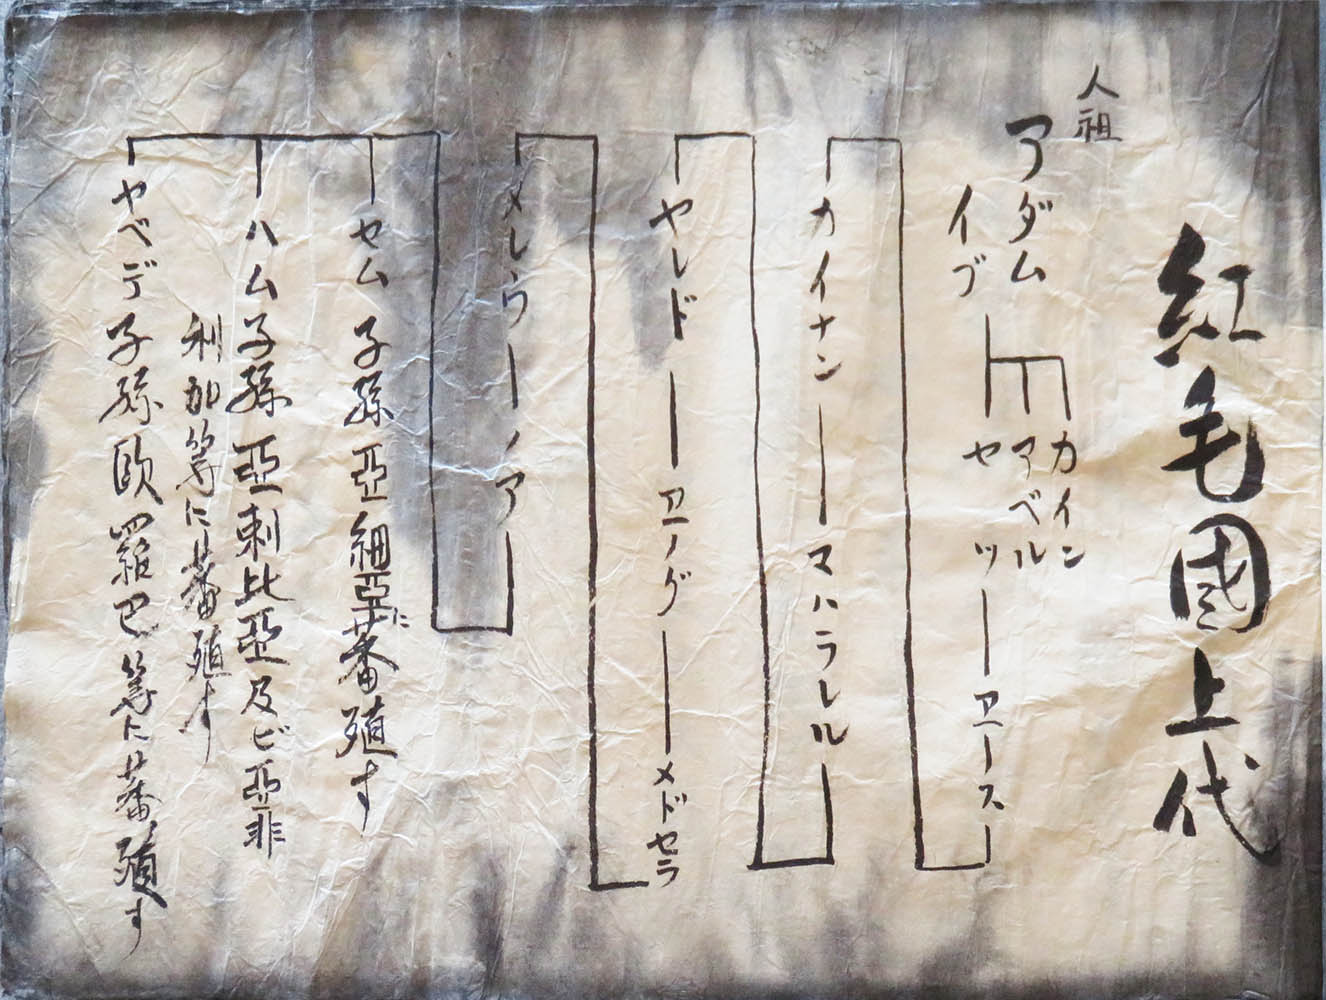 紅毛國上代
人祖
アダム
イブ
カイン
アベル
セツ
エノス
カイナン
マハラレル
ヤレド
エノグ
メドセラ
メレウ
ノア
セム 子孫亞細亞に蕃殖す
ハム子孫亞刺比亞及ビ亞非
利加等に蕃殖す
ヤベデ子孫欧羅巴等に蕃殖す